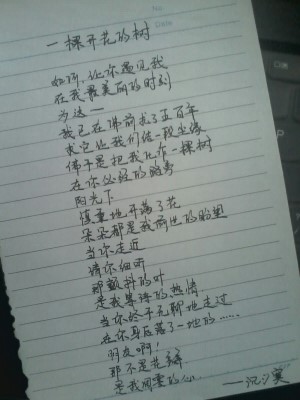 一棵开花的树
如何,让你遇见我
在我最美丽的时刻
为这一
我已在佛前求了五百年
求它让我们结一段尘缘
佛于是把我化作一棵树
在你必经的路旁
阳光下
慎重地开满了花
朵朵都是我前世的盼望
当你走近
请你细听
那颤抖的叶
是我等待的热情
当你终于无聊地走过
在你身后落了一地的……
朋友啊!
那不是花瓣
是我凋零的心